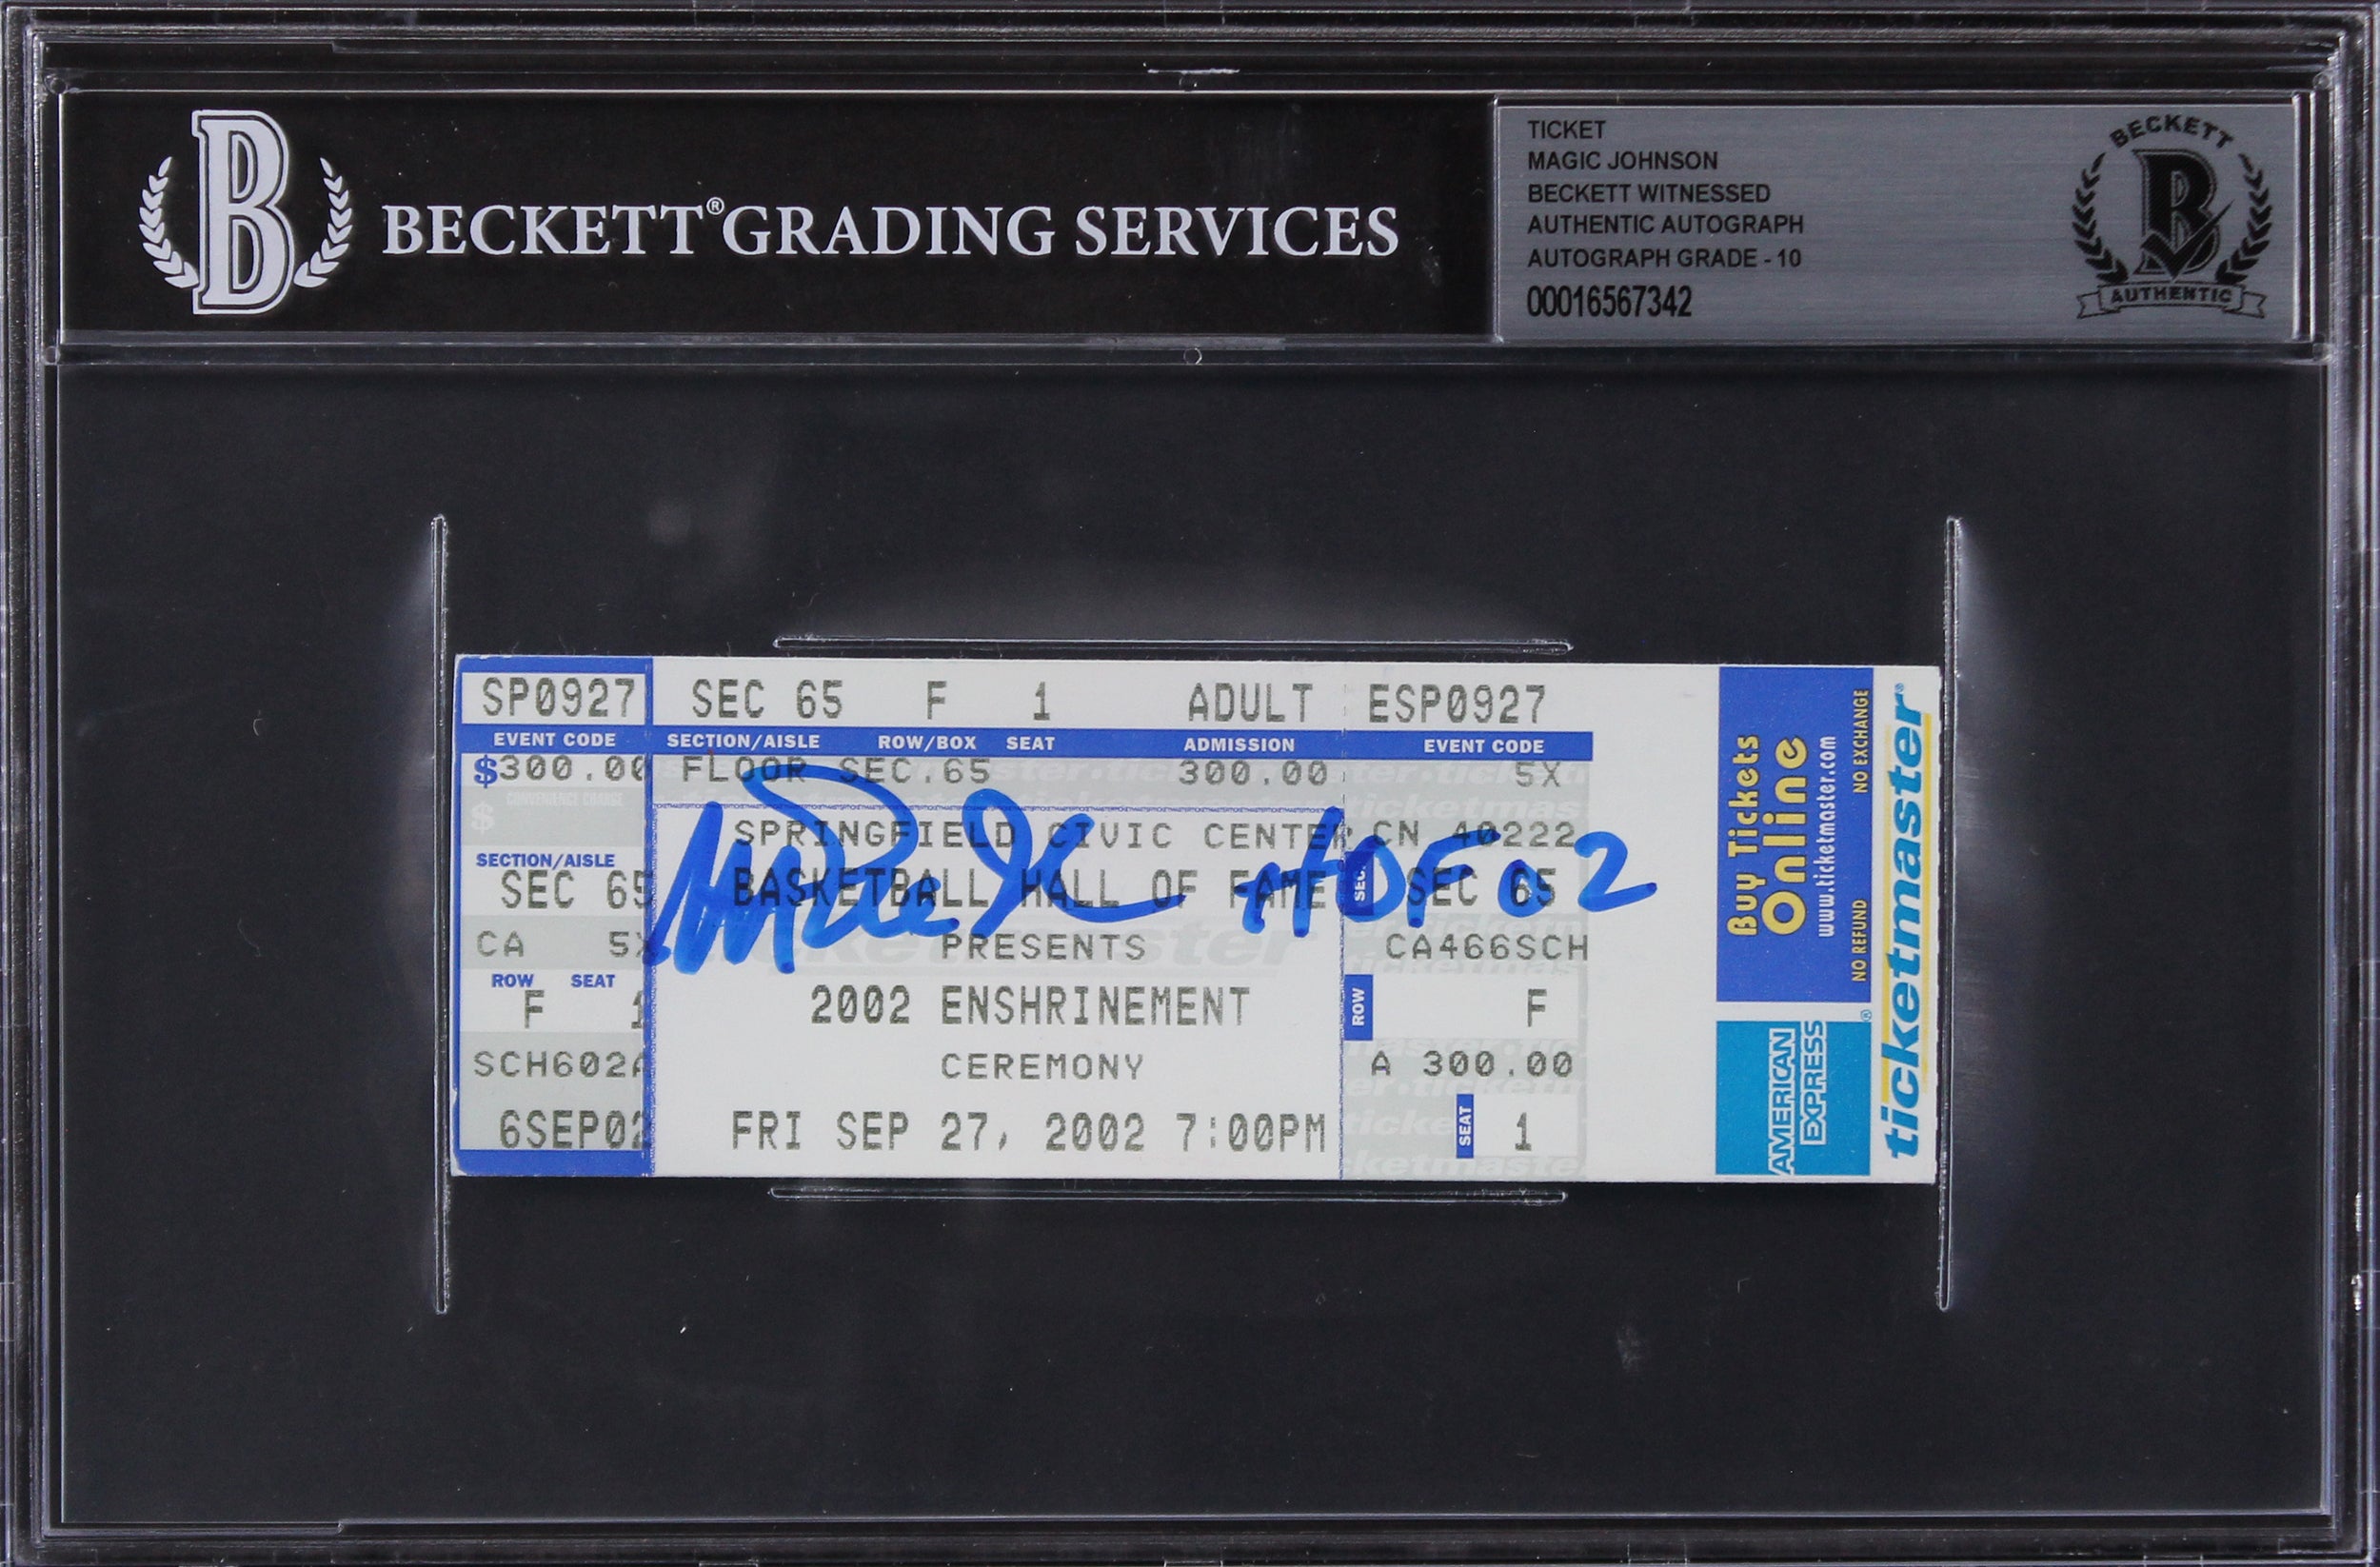 BECKETT® GRADING SERVICES
TICKET
MAGIC JOHNSON
BECKETT WITNESSED
AUTHENTIC AUTOGRAPH
AUTOGRAPH GRADE - 10
00016567342
BECKETT
B
AUTHENTIC
SP0927 SEC 65 F 1 ADULT ESP0927
EVENT CODE SECTION/AISLE ROW/BOX SEAT ADMISSION EVENT CODE
$300.00 FLOOR SEC.65 300.00 5X
CONVENIENCE CHARGE
$
SPRINGFIELD CIVIC CENTER CN 40222
SECTION/AISLE
SEC 65 BASKETBALL HALL OF FAME SEC. SEC 65
HOF 02
CA 5X PRESENTS CA466SCH
ROW SEAT
F 1 2002 ENSHRINEMENT ROW F
SCH602A CEREMONY A 300.00
6SEP02 FRI SEP 27, 2002 7:00PM SEAT 1
Buy Tickets
Online
www.ticketmaster.com
NO REFUND NO EXCHANGE
AMERICAN
EXPRESS®
ticketmaster®